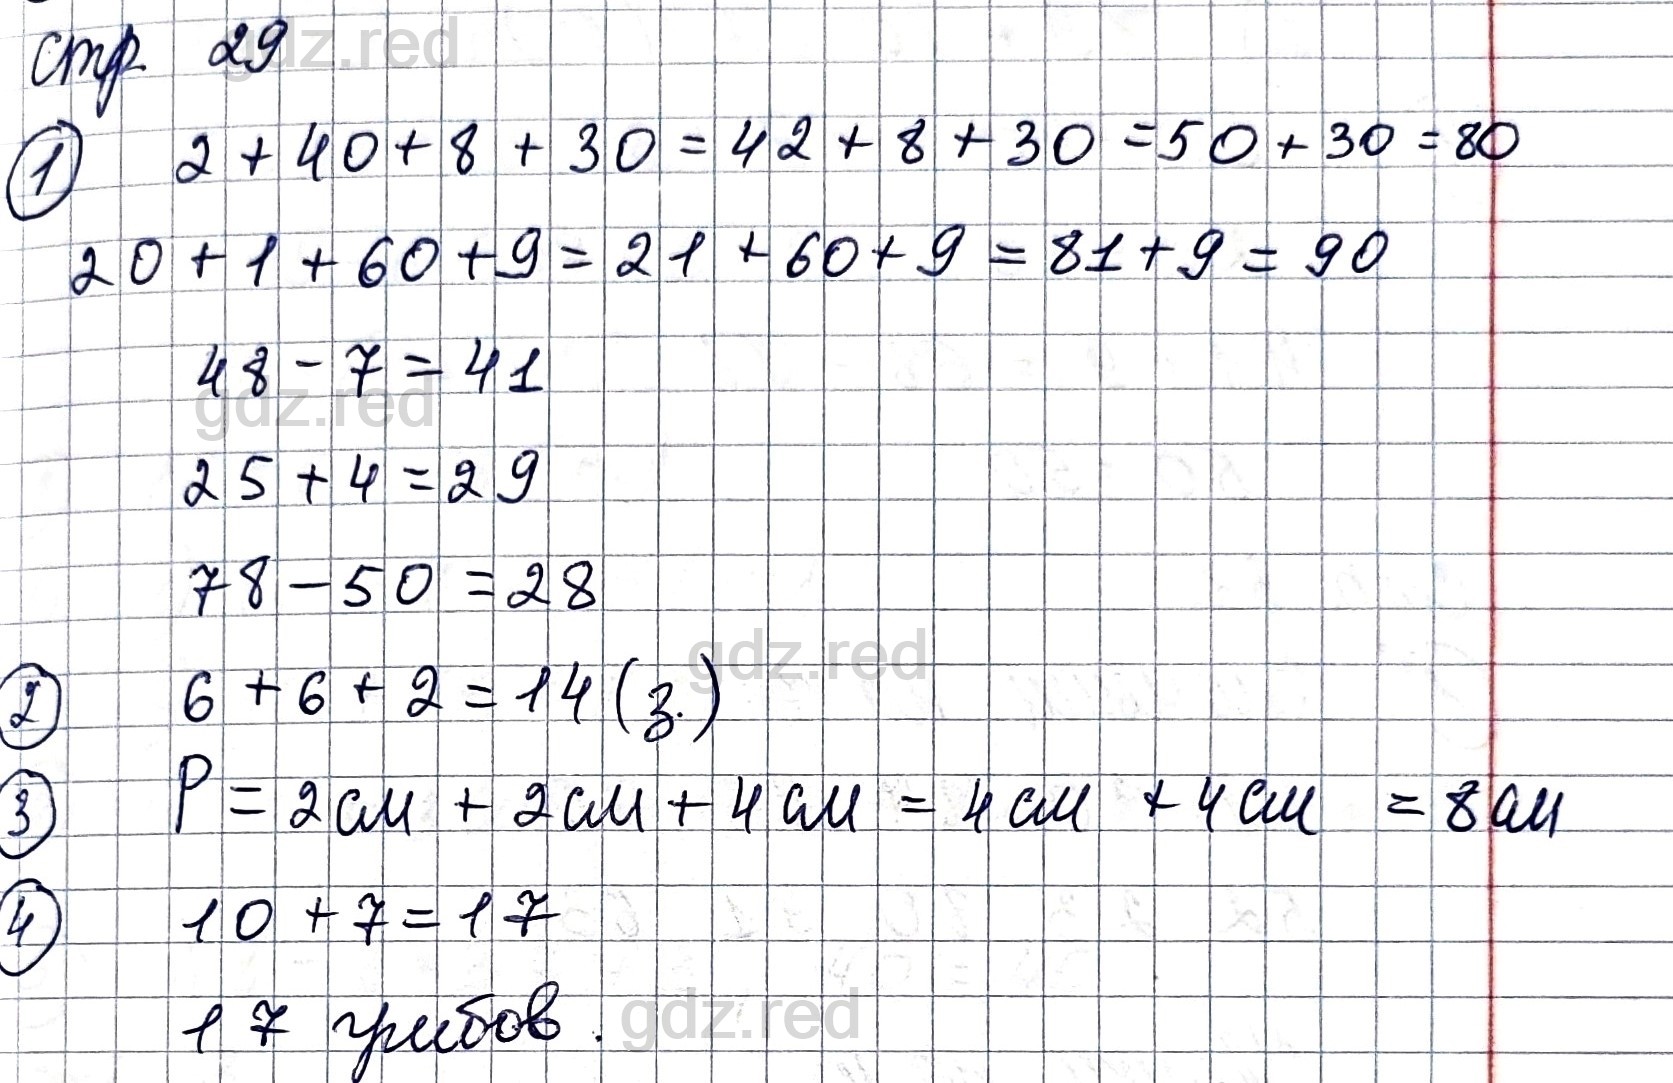 стр. 29
gdz.red
1 2 + 40 + 8 + 30 = 42 + 8 + 30 = 50 + 30 = 80
20 + 1 + 60 + 9 = 21 + 60 + 9 = 81 + 9 = 90
48 - 7 = 41
gdz.red
25 + 4 = 29
78 - 50 = 28
gdz.red
2 6 + 6 + 2 = 14 (з.)
3 P = 2 см + 2 см + 4 см = 4 см + 4 см = 8 см
4 10 + 7 = 17
17 грибов.
gdz.red